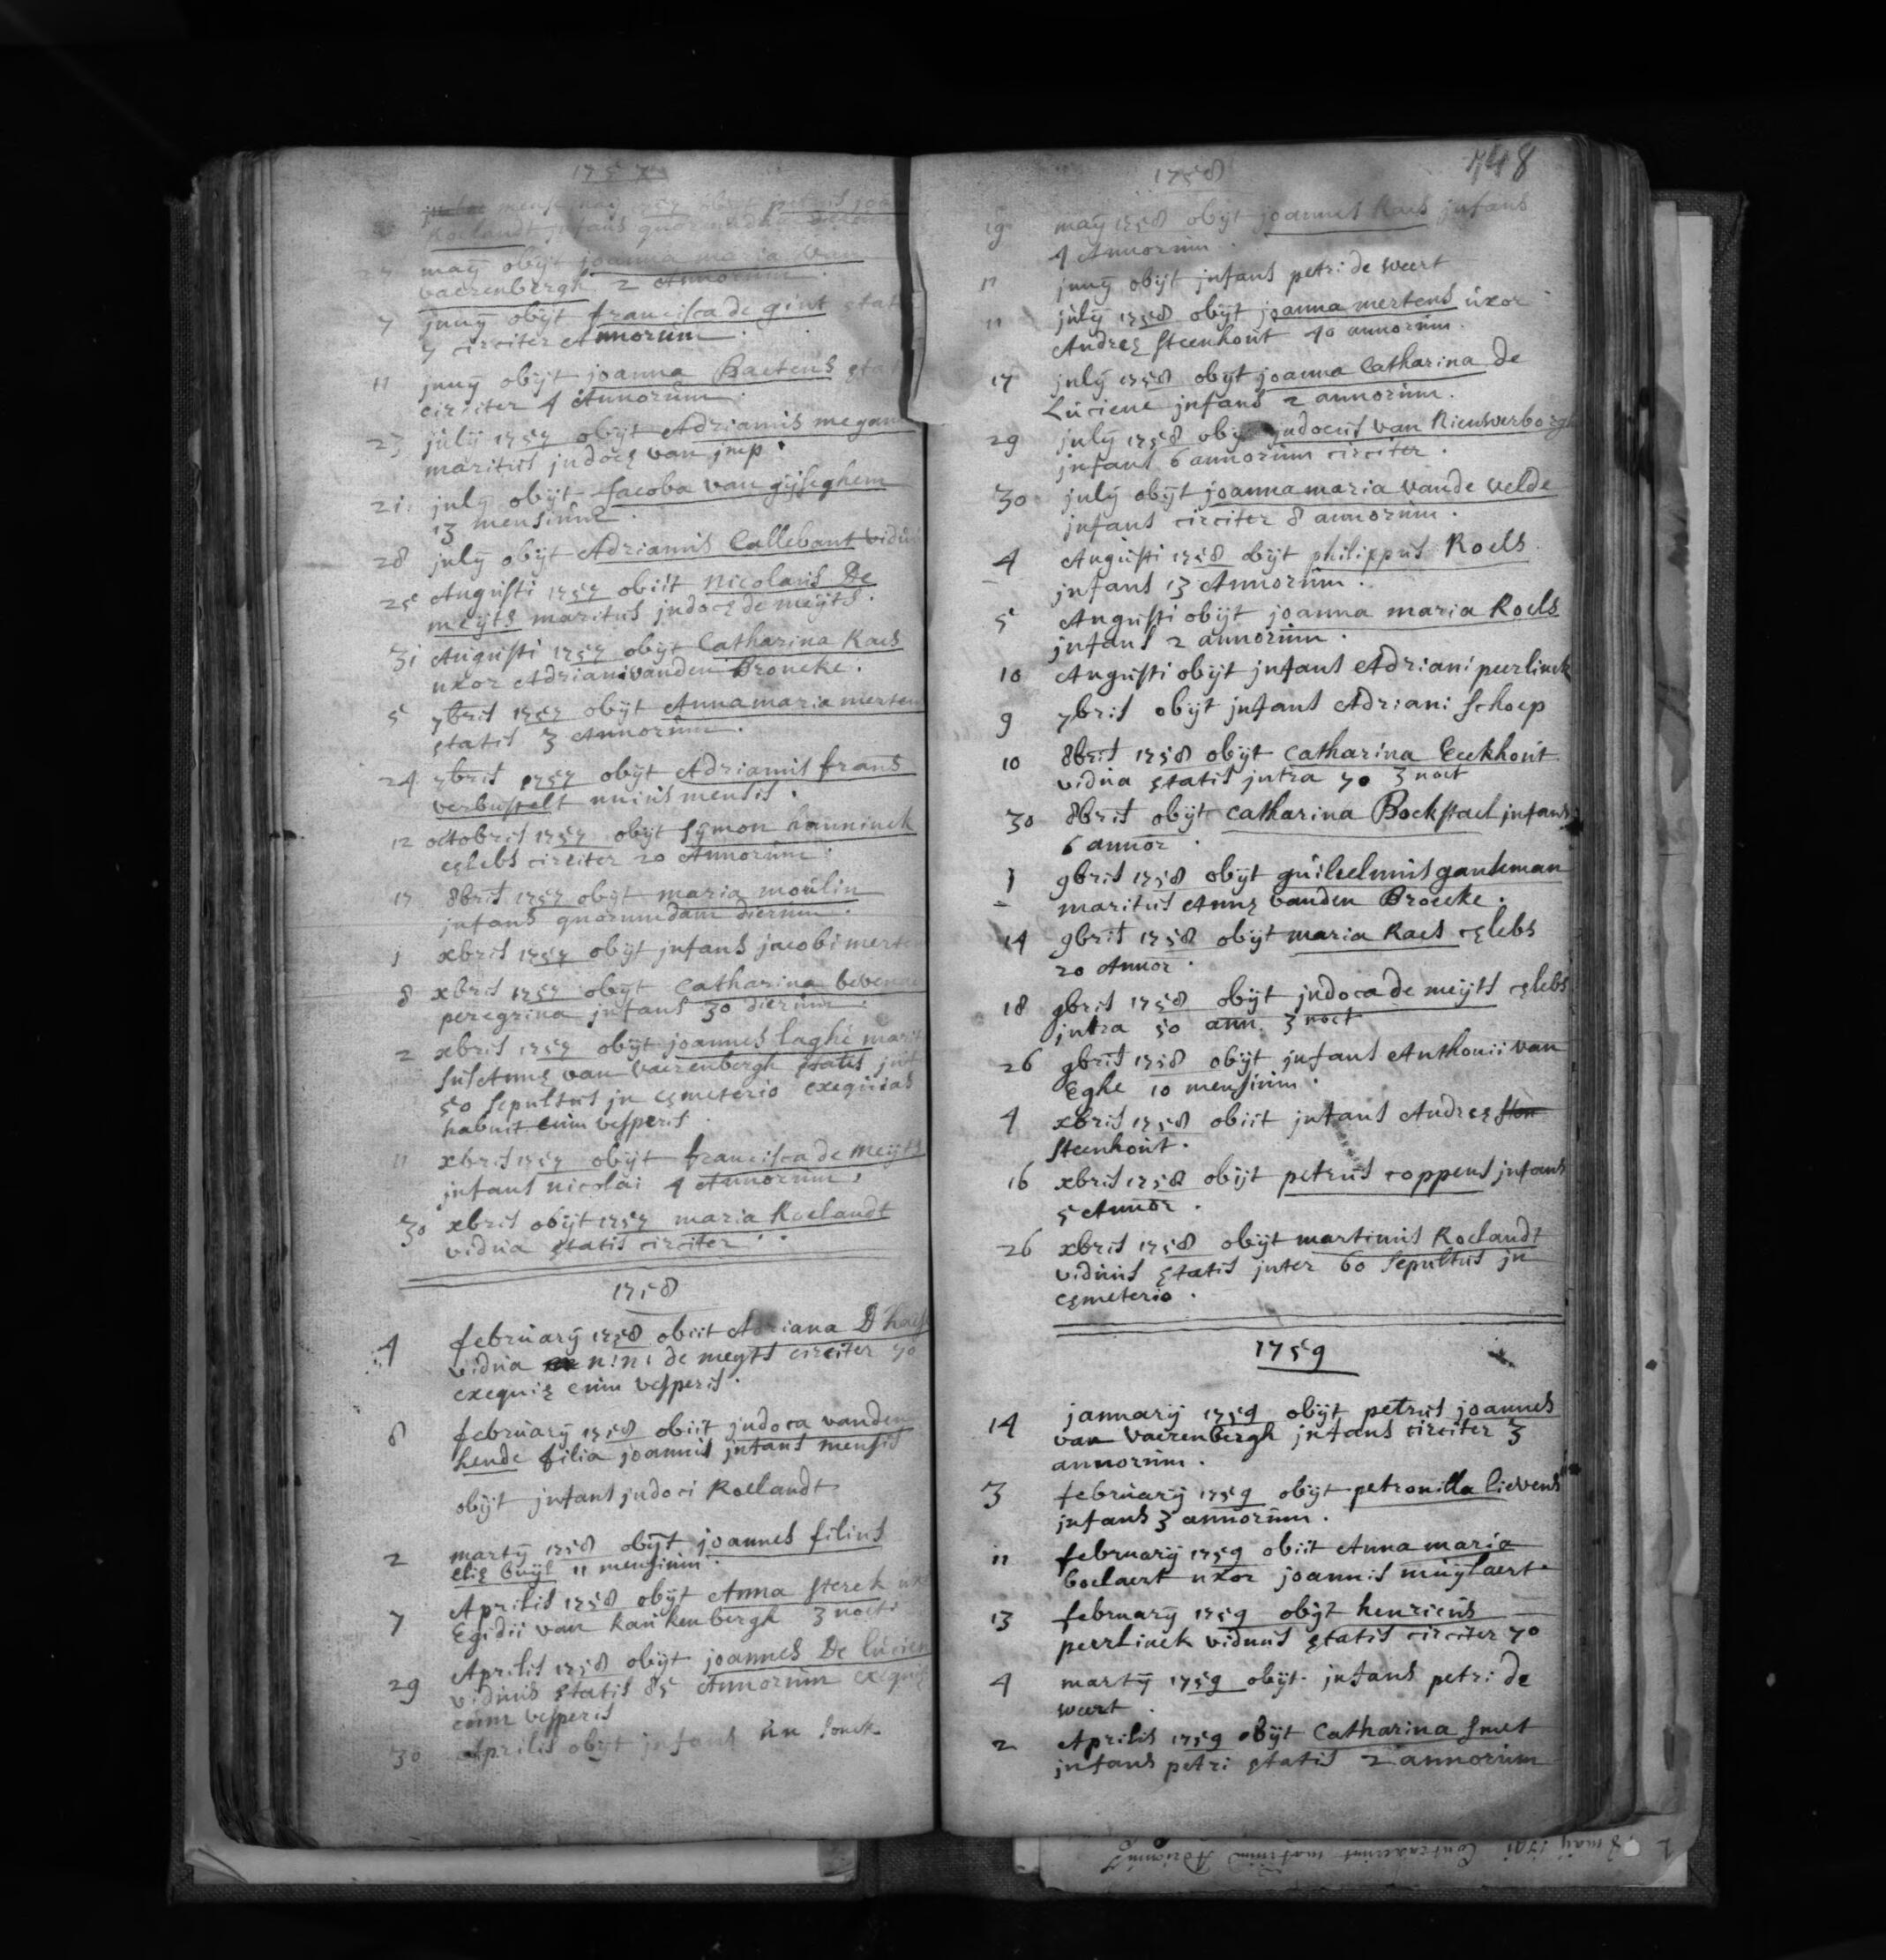 1757
mense may 1757 obijt petrus joa
Roelandt infans quorumdam
27 maij obijt joanna maria van
vaerenbergh 2 Annorum.
7 junij obijt francisca de gint ętat
7 circiter Annorum.
11 junij obijt joanna Baetens ęta
circiter 4 Annorum.
julij 1757 obijt Adrianus megan
maritus judocę van jmp.
21. july obijt Jacoba van gijseghem
13 mensium.
28 julij obijt Adrianus Callebaut vidu
25 Augusti 1757 obiit Nicolaus De
meyts maritus judocę de meyts.
31 Augusti 1757 obijt Catharina Raes
uxor Adriani vanden Broucke.
5 7bris 1757 obijt Anna maria merten
ętatis 3 Annorum.
24 7bris 1757 obijt Adrianus frans
verbusselt unius mensis.
12 octobris 1757 obijt Sijmon
cęlebs circiter 20 Annorum.
17 8bris 1757 obijt maria moulin
infans quorumdam dierum.
1 xbris 1757 obijt infans jacobi merten
8 xbris 1757 obijt Catharina
peregrina infans 30 dierum.
2 xbris 1757 obijt joannes laghe marit
susAnnę van vaerenbergh ętatis jnt
50 sepultus jn cęmeterio exequias
habuit cum vesperis.
11 xbris 1757 obijt francisca de meyts
infans nicolai 4 Annorum,
30 xbris obijt 1757 maria Roelandt
vidua ętatis circiter..
1758
4 februarij 1758 obiit Adriana D'haes
vidua n:n: de meyts circiter 70
exequię cum vesperis.
8 februarij 1758 obiit judoca vanden
hende filia joannis infans mensis
obijt infans judoci Roelandt
2 martij 1758 obijt joannes filius
elię buijs 11 mensium.
7 Aprilis 1758 obijt Anna Sterck ux
Egidii van kau kenbergh 3 nocti
29 Aprilis 1758 obijt joannes De lucien
viduus ętatis 85 Annorum exequię
cum vesperis
30 Aprilis obijt infans
1758
748
19 maij 1758 obijt joannes Raes infans
4 Annorum.
11 junij obijt infans petri de weert
11 julij 1758 obijt joanna mertens uxor
Andreę Steenhout 40 annorum.
17 julij 1758 obijt joanna Catharina de
Luciene infans 2 annorum.
29 julij 1758 obij judocus van Nieuwerborgh
infans 6 annorum circiter.
30 julij obijt joanna maria vande velde
infans circiter 8 annorum.
4 Augusti 1758 obijt philippus Roels
infans 13 Annorum.
5 Augusti obijt joanna maria Roels
infans 2 annorum.
10 Augusti obijt infans Adriani peerlinck
9 7bris obijt infans Adriani Schoep
10 8bris 1758 obijt catharina Eeckhout
vidua ętatis jntra 70 3 noct
30 8bris obijt catharina Bockstael infans
6 annor.
1 9bris 1758 obijt guilielmus gauseman
maritus Annę vanden Broecke.
14 9bris 1758 obijt maria Raes cęlebs
20 Annor.
18 9bris 1758 obijt judoca de meijts cęlebs
jntra 50 ann. 3 noct
26 9bris 1758 obijt infans Anthonii van
Eghe 10 mensium.
4 xbris 1758 obiit infans Andreę
Steenhout.
16 xbris 1758 obijt petrus coppens infans
5 Annor.
26 xbris 1758 obijt martinus Roelandt
viduus ętatis jnter 60 sepultus jn
cęmeterio.
1759
14 januarij 1759 obijt petrus joannes
van vaerenbergh infans circiter 3
annorum.
3 februarij 1759 obijt petronilla lievens
infans 3 annorum.
11 februarij 1759 obiit Anna maria
boelaert uxor joannis muijlaert.
13 februarij 1759 obijt henricus
peerlinck viduus ętatis circiter 70
4 martij 1759 obijt infans petri de
weert.
2 Aprilis 1759 obijt Catharina smet
infans petri ętatis 2 annorum